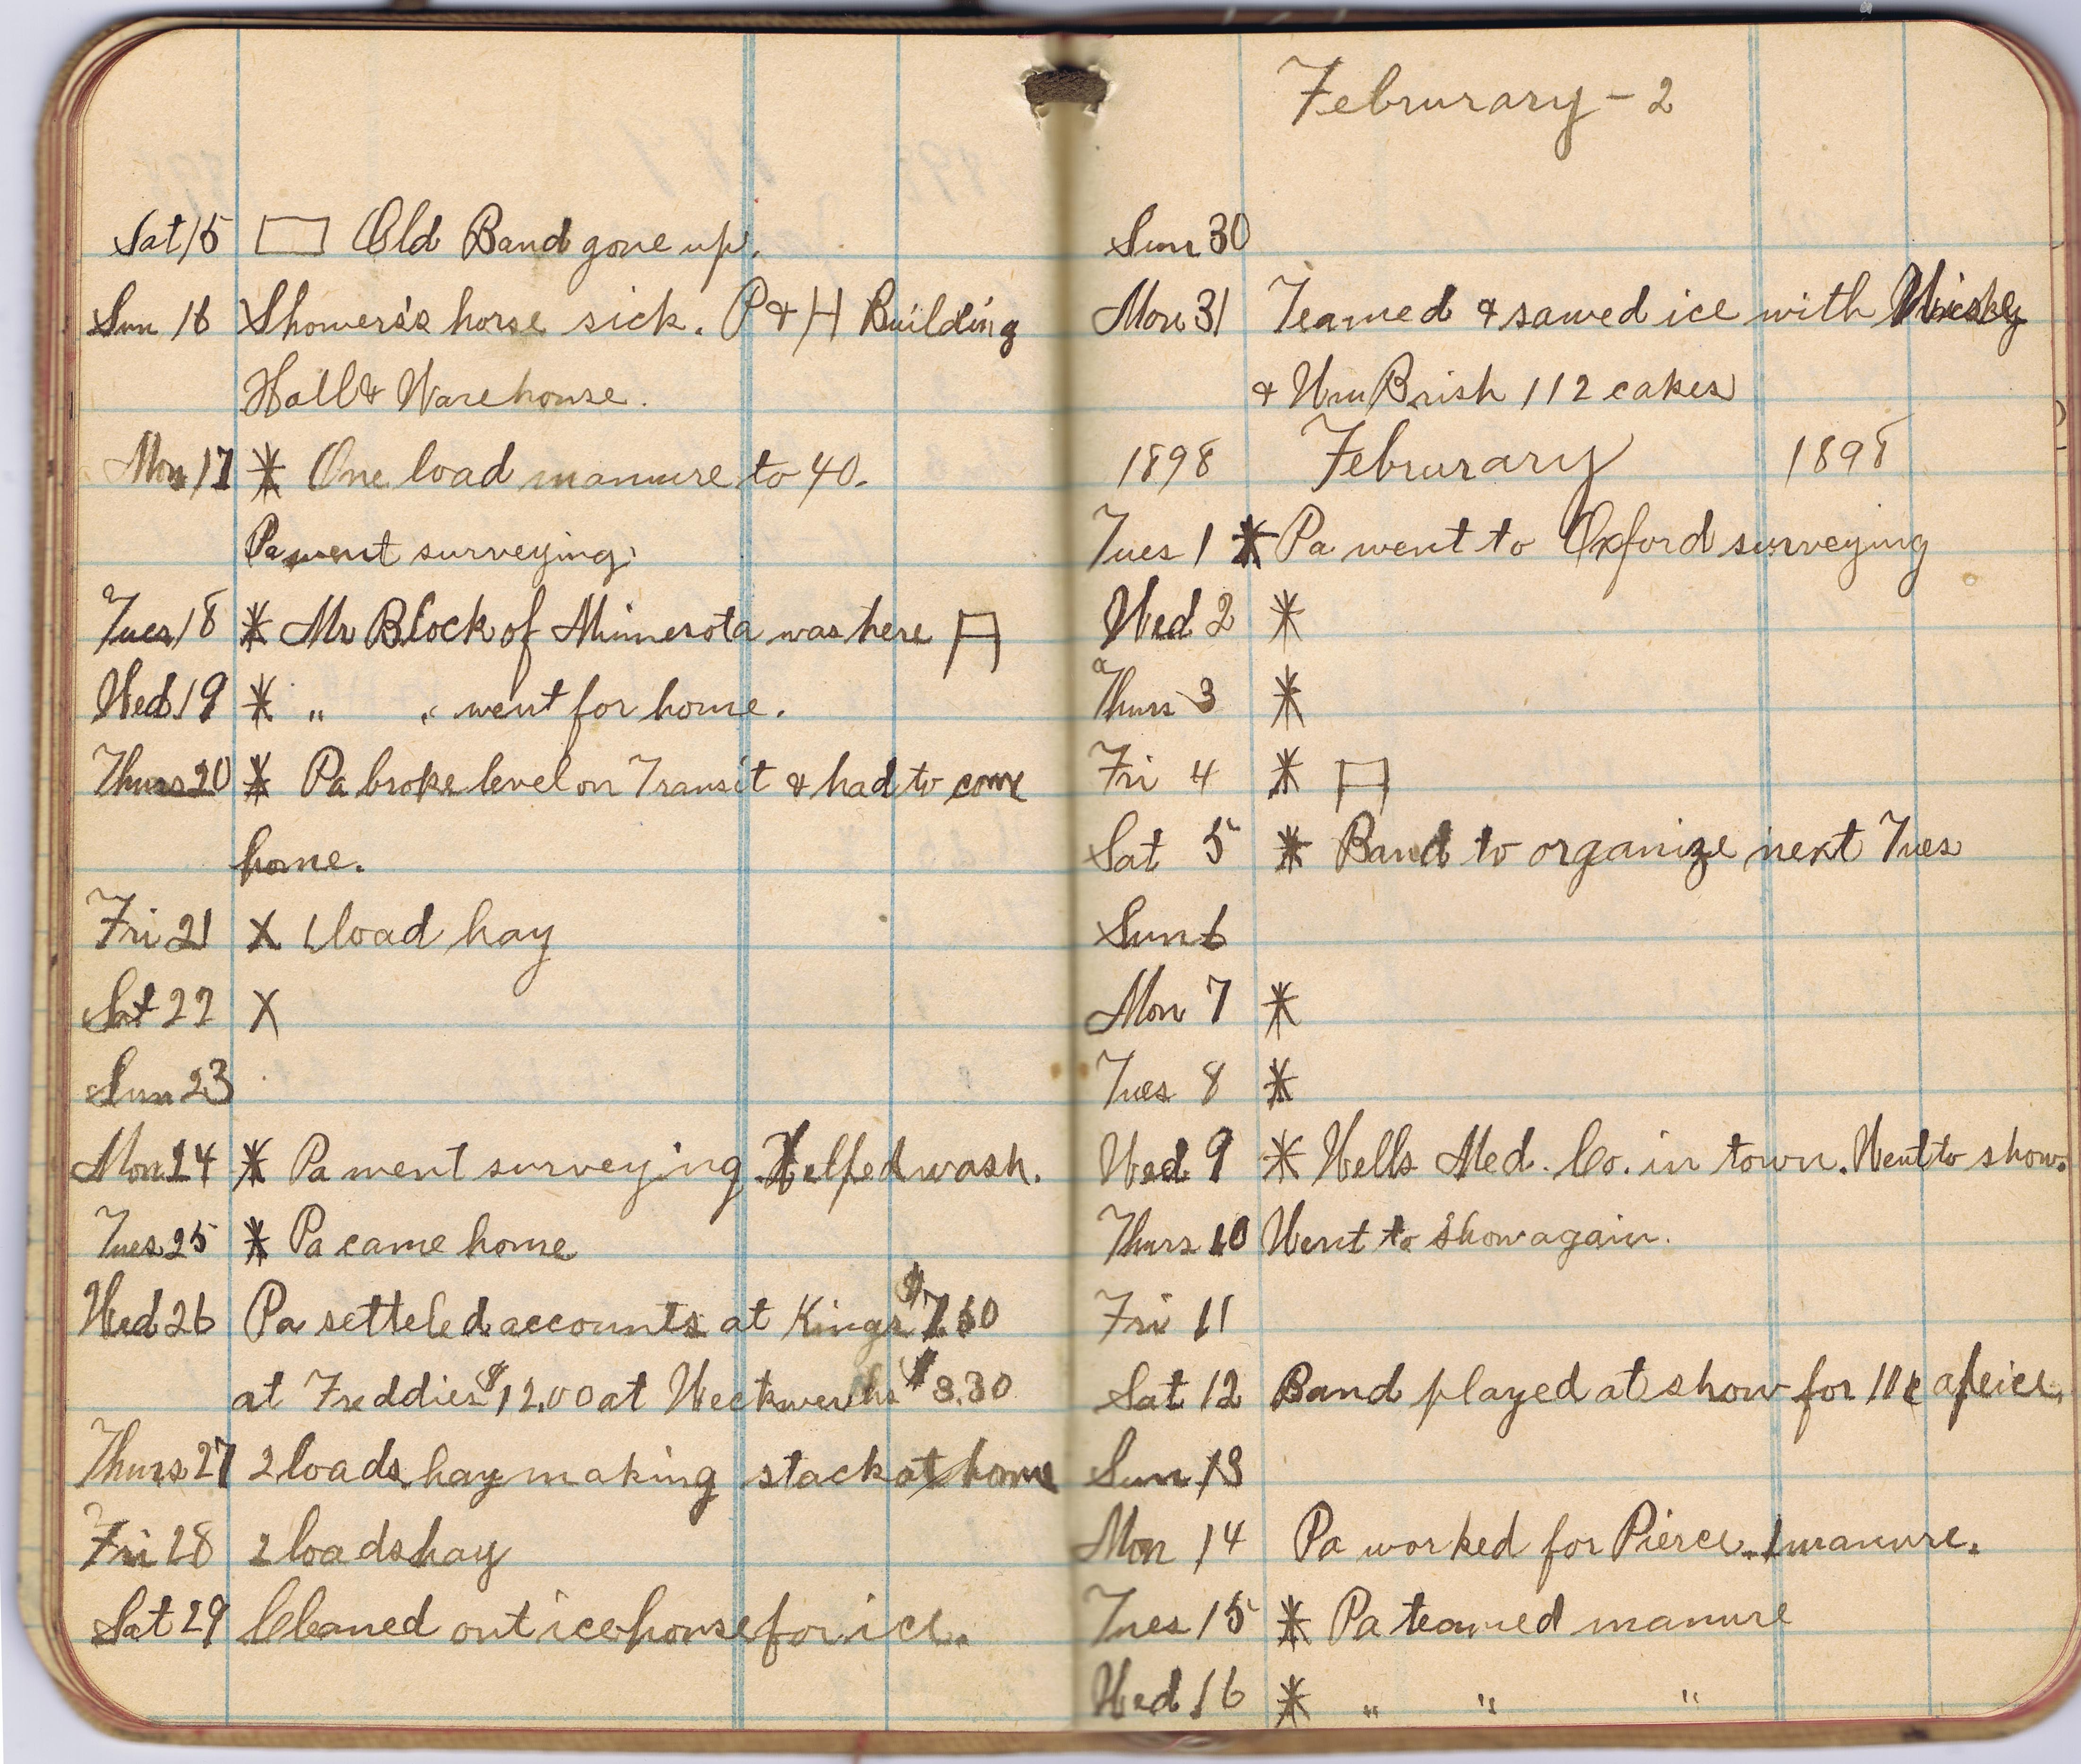 Sat 15 Old Band gone up.
Sun 16 Showers's horse sick. P & H Building
Hall & Warehouse.
Mon 17 * One load manure to 40.
Pa went surveying.
Tues 18 * Mr Block of Minnesota was here
Wed 19 * " " went for home.
Thurs 20 * Pa broke level on Transit & had to come
home.
Fri 21 X 1 load hay
Sat 22 X
Sun 23
Mon 24 * Pa went surveying. Helped wash.
Tues 25 * Pa came home
Wed 26 Pa setteled accounts at Kings $7.60
at Freddies $12.00 at $3.30
Thurs 27 2 loads hay making stack at home
Fri 28 2 loads hay
Sat 29 Cleaned out icehouse for ice.
Februrary - 2
Sun 30
Mon 31 Teamed & sawed ice with
& Wm Brish 112 cakes
1898 Februrary 1898
Tues 1 * Pa went to Oxford surveying
Wed 2 *
Thurs 3 *
Fri 4 *
Sat 5 * Band to organize next Tues
Sun 6
Mon 7 *
Tues 8 *
Wed 9 * Wells Med. Co. in town. Went to show.
Thurs 10 Went to show again.
Fri 11
Sat 12 Band played at show for 10¢ apeice.
Sun 13
Mon 14 Pa worked for Pierce. 1 manure.
Tues 15 * Pa teamed manure
Wed 16 * " " "